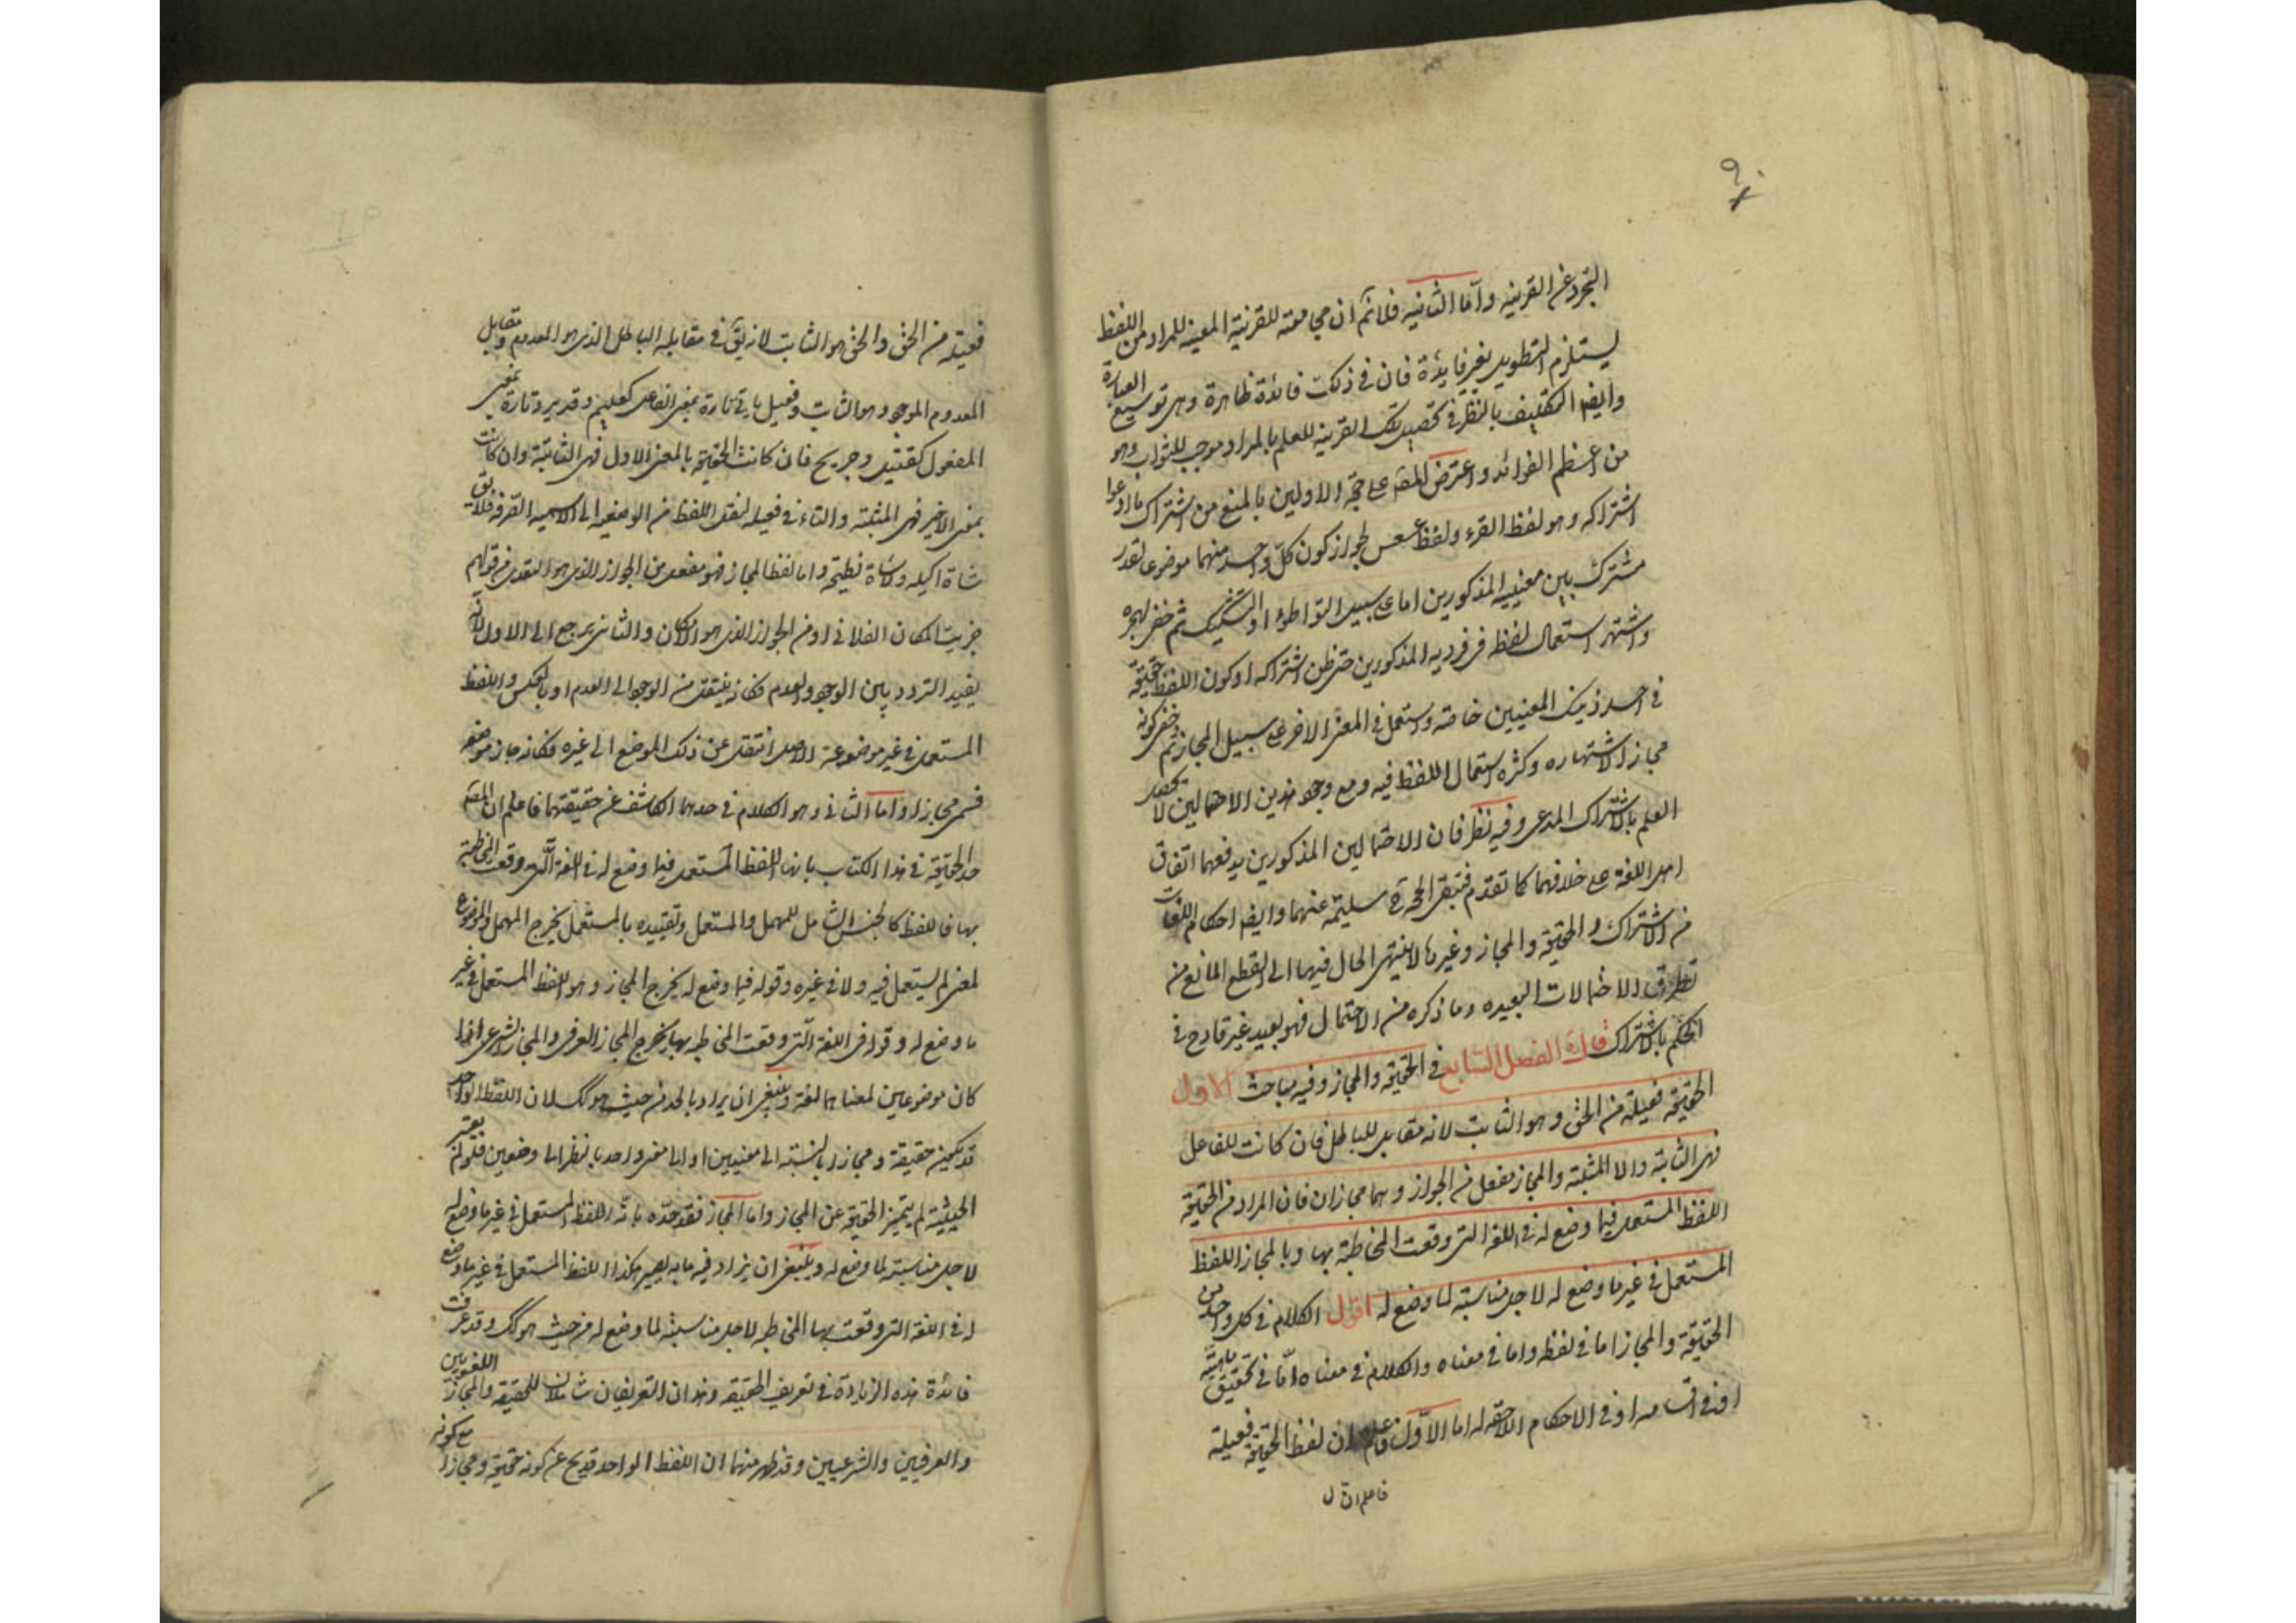 ٩٠
التجرد عن القرينه وامّا الثانيه فلانّم ان مجامعته للقرينة المعينه للمراد من اللفظ
يستلزم التطويل بغير فايدة فان في ذلك فائدة ظاهرة وهى توسيع العبارة
وايضا التكليف بالنظر في تحصيل تلك القرينه للعلم بالمراد موجب للثواب وهو
من اعظم الفوائد واعترض المصّ على حجّة الاولين بالمنع من اشتراك ما ادعوا
اشتراكه وهو لفظ القرء ولفظ عسعس لجواز كون كلّ واحد منهما موضوعا لقدر
مشترك بين معنييه المذكورين اما على سبيل التواطؤ او التشكيك ثم خفى
واشتهر استعمال لفظه فى فرديه المذكورين حتى ظن اشتراكه او كون اللفظ حقيقة
في احد ذينك المعنيين خاصة واستعمل في المعنى الاخر على سبيل المجاز ثم وخفى كونه
مجازا لاشتهاره وكثرة استعمال اللفظ فيه ومع وجود هذين الاحتمالين لا يحصل
العلم بالاشتراك المدعى وفيه نظر فان الاحتمالين المذكورين يدفعهما اتفاق
اهل اللغة على خلافهما كما تقدّم فتبقى الحجة سليمة عنهما وايضا احكام اللغات
من الاشتراك والحقيقة والمجاز وغيرها لا ينتهى الحال فيها الى القطع المانع من
تطرق الاحتمالات البعيده وما ذكره من الاحتمال فهو بعيد غير قادح في
الحكم بالاشتراك قال الفصل السابع في الحقيقة والمجاز وفيه مباحث الاول
الحقيقه فعيلة من الحق وهو الثابت لانه مقابل للباطل فان كانت للفاعل
فهى الثابتة والا المثبتة والمجاز مفعل من الجواز وهما مجازان فان المراد من الحقيقة
اللفظ المستعمل فيما وضع له في اللغه التى وقعت المخاطبة بها وبالمجاز اللفظ
المستعمل في غير ما وضع له لاجل مناسبته لما وضع له اقول الكلام في كل واحد من
الحقيقة والمجاز اما في لفظه واما في معناه والكلام في معناه امّا في تحقيق ماهيته
او في اقسامه او في الاحكام اللاحقه له اما الاوّل فاعلم ان لفظ الحقيقة فعيلة
فاعلم ان ل
فعيلة من الحق والحق هو الثابت لانه يقّ في مقابله الباطل الذى هو المعدوم ومقابل
المعدوم الموجود وهو الثابت وفعيل ياتي تارة بمعنى الفاعل كعليم وقدير وتارة بمعنى
المفعول كقتيل وجريح فان كانت الحقيقة بالمعنى الاول فهى الثابتة وان كانت
بمعنى الاخير فهى المثبتة والتاء في فعيله لنقل اللفظ من الوصفيه الى الاسميه الصرفه فلا يق
شاة اكيله ولا شاة نطيحة واما لفظ المجاز فهو مفعل من الجواز الذى هو التعدى فى قولهم
جزيت المكان الفلاني او من الجواز الذى هو الامكان والثانى يرجع الى الاول لانّه
يفيد التردد بين الوجود والعدم فكانه ينتقل من الوجود الى العدم او بالعكس واللفظ
المستعمل في غير موضوعه الاصل انتقل عن ذلك الموضع الى غيره فكانه جاز موضعه
فسمى مجازا واما الثاني وهو الكلام في حدهما الكاشف عن حقيقتهما فاعلم ان المصّ
حد الحقيقة في هذا الكتاب بانها اللفظ المستعمل فيما وضع له في اللغة الّتى وقعت المخاطبة
بها فاللفظ كالجنس الشامل للمهمل والمستعمل وتقييده بالمستعمل يخرج المهمل والموضوع
لمعنى لم يستعمل فيه ولا في غيره وقوله فيما وضع له يخرج المجاز وهو اللفظ المستعمل في غير
ما وضع له وقوله فى اللغة الّتى وقعت المخاطبه بها يخرج المجاز العرفى والمجاز الشرعى اذا
كان موضوعين لمعناهما لغة وينبغى ان يراد بالحد من حيث هو كك لان اللفظ الواحد
قد يكون حقيقة ومجازا بالنسبة الى معنيين او الى معنى واحد بالنظر الى وضعين فلو لم يعتبر
الحيثية لم يتميز الحقيقة عن المجاز واما المجاز فقد حدّه بانّه اللفظ المستعمل في غير ما وضع له
لاجل مناسبته لما وضع له وينبغى ان يزاد فيه ما به يصير هكذا اللفظ المستعمل في غير ما وضع
له في اللغة التى وقعت بها المخاطبه لاجل مناسبته لما وضع له من حيث هو كك وقد عرفت
فائدة هذه الزيادة في تعريف الحقيقه وهذان التعريفان شاملان للحقيقه والمجاز اللغويين
والعرفيين والشرعيين وقد ظهر منهما ان اللفظ الواحد قد يخ عن كونه حقيقة ومجازا مع كونه